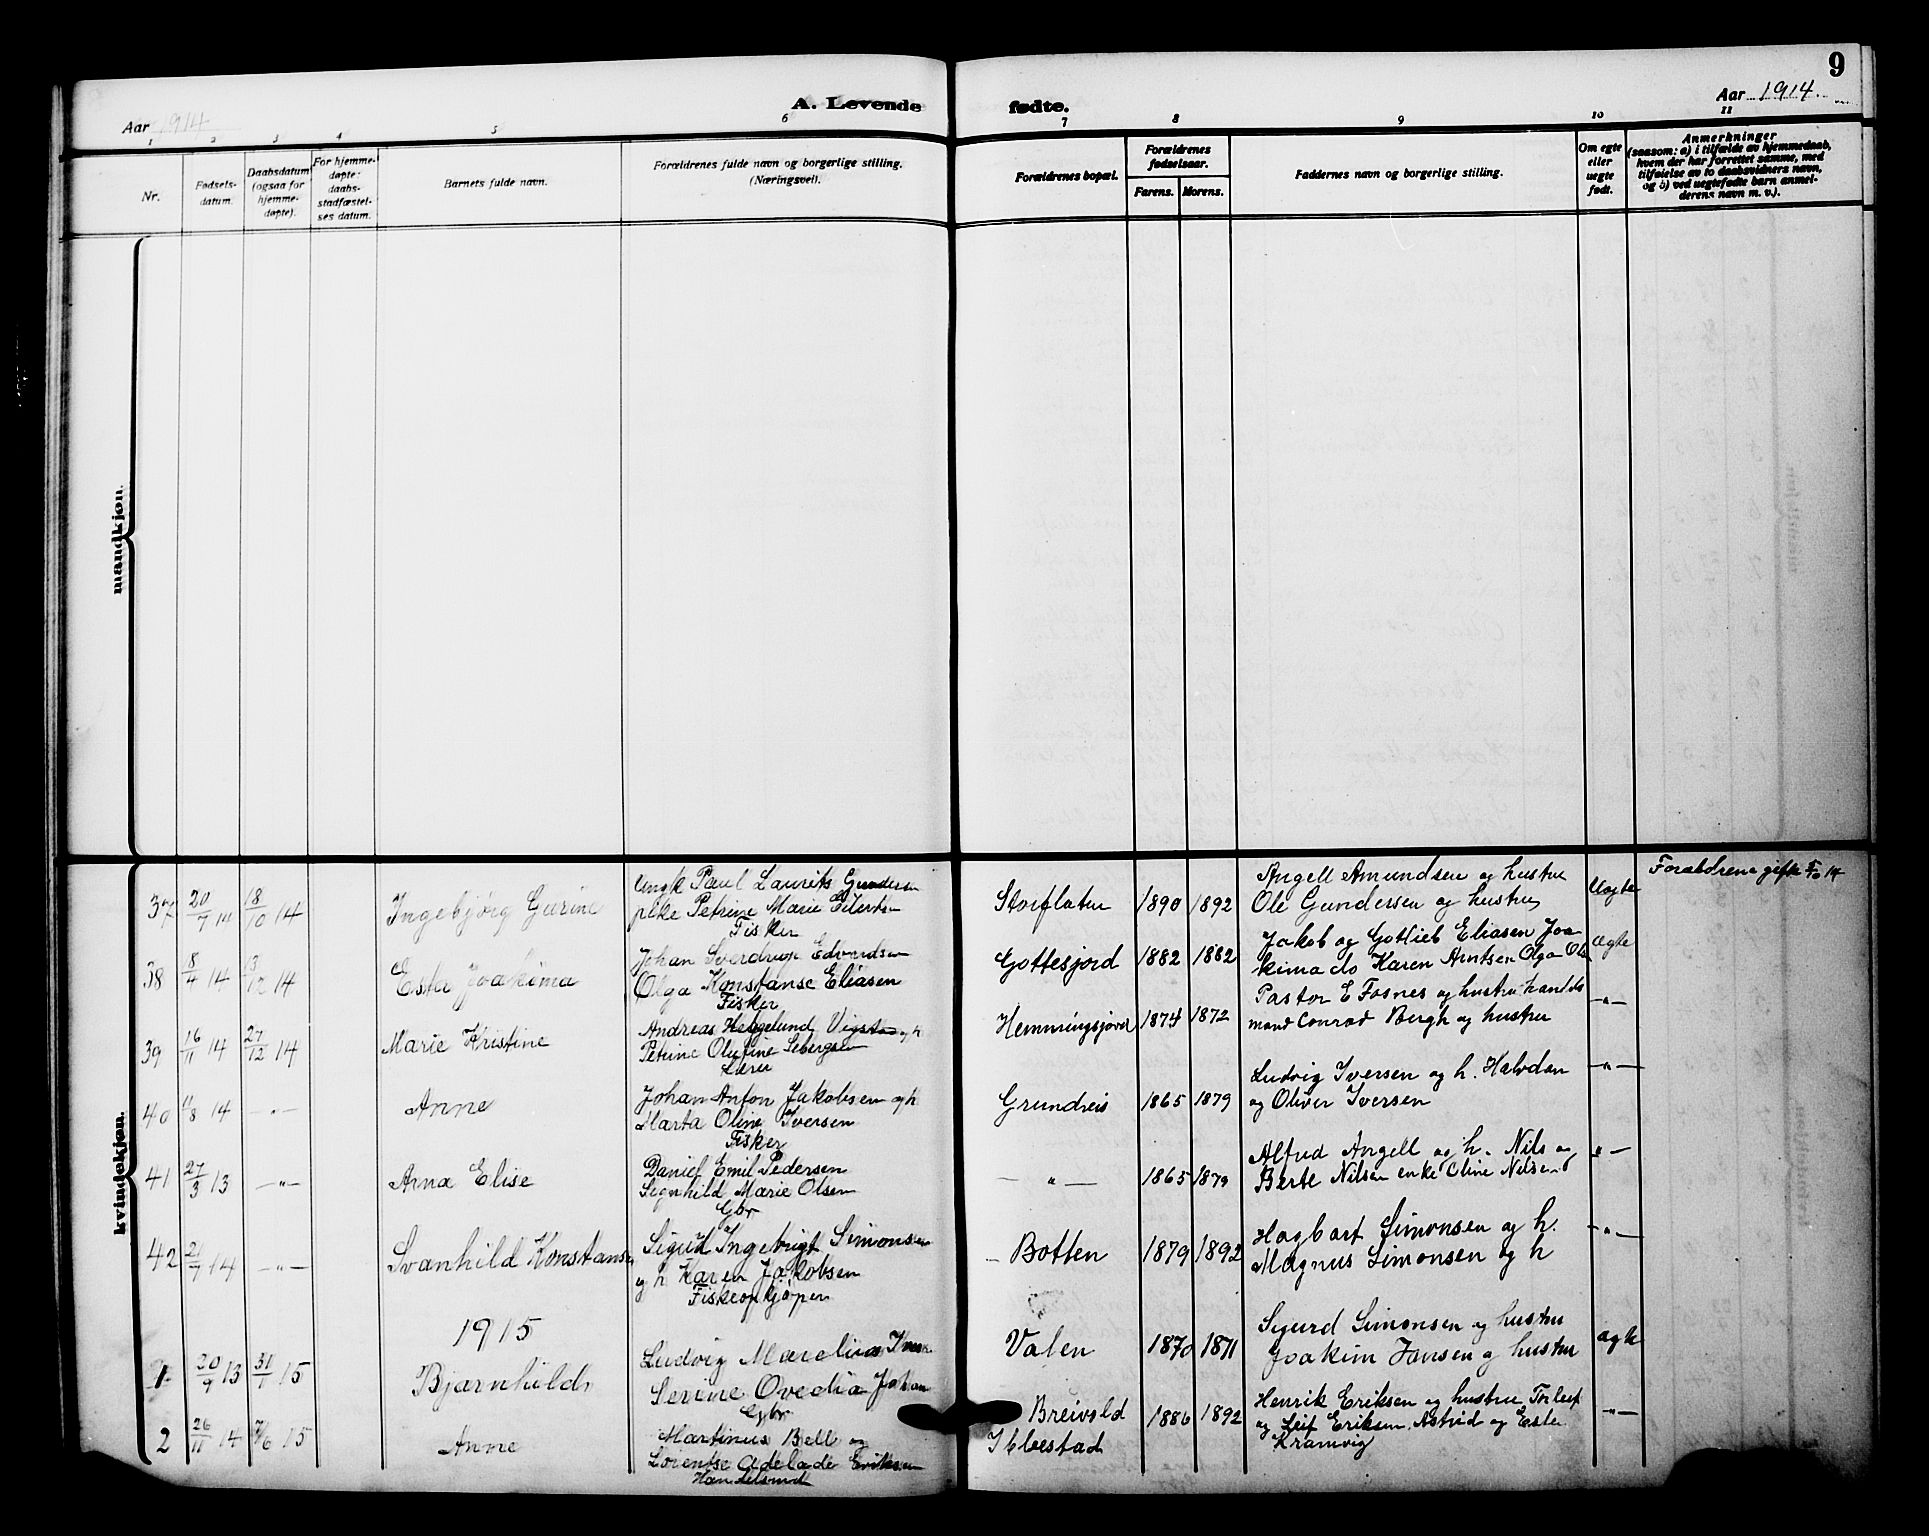 9
A. Levende fødte.
Aar 1914
Aar 1914
1 2 3 4 5 6 7 8 9 10 11
Nr.
Fødsels-
datum.
Daabsdatum
(ogsaa for
hjemme-
døpte).
For hjemme-
døpte:
daabs-
stadfæstel-
ses datum.
Barnets fulde navn.
Forældrenes fulde navn og borgerlige stilling.
(Næringsvei).
Forældrenes bopæl.
Forældrenes
fødselsaar.
Farens. Morens.
Faddernes navn og borgerlige stilling.
Om egte
eller
uegte
født.
Anmerkninger
(saasom: a) i tilfælde av hjemmedaab,
hvem der har forrettet samme, med
tilføielse av to daabsvidners navn,
og b) ved uegtefødte barn anmel-
derens navn m. v.).
mandkjøn.
kvindekjøn.
37 20/9 14 18/10 14 Ingebjørg Gurine
Ungk Paul Laurits Gundersen
pike Petrine Marie Eilertsen
Fisker
Storflaten 1890 1892
Angell Amundsen og hustru
Ole Gundersen og hustru
Uegte
Forældrene gifte
38 8/4 14 13/12 14 Esta Joakima
Johan Sverdrup Edvardsen
Olga Konstanse Eliasen
Fisker
Gottesjord 1882 1882
Jakob og Gotlieb Eliasen Joa
kima do Karen Arntsen Olga
ægte
39 16/11 14 27/12 14 Marie Kristine
Andreas Heggelund Vigstad og h
Petrine Olufine Sebergsen
Lærer
Hemmingsjord 1874 1872
Pastor E Fosnes og hustru handls
mand Conrad Bergh og hustru
—"—
40 11/8 14 —"— Anne
Johan Anton Jakobsen og h
Marta Oline Iversen
Fisker
Grundreis 1865 1879
Ludvig Iversen og h. Halvdan
og Oliver Iversen
—"—
41 27/3 13 —"— Arna Elise
Daniel Emil Pedersen
Signhild Marie Olsen
Gbr
—"— 1865 1879
Alfred Angell og h. Nils og
Berte Nilsen enke Oline Nilsen
"—
42 21/7 14 —"— Svanhild Konstanse
Sigurd Ingebrigt Simonsen
og h Karen Jakobsen
Fiskeopkjøper
Botten 1879 1892
Hagbart Simonsen og h.
Magnus Simonsen og h
—"—
1915
1 20/9 13 31/1 15 Bjarnhild
Ludvig Marelius
Serine Ovedia Johan
Gbr
Valen 1870 1871
Sigurd Simonsen og hustru
Joakim Jansen og hustru
ægte
2 26/11 14 7/6 15 Anne
Martinus Bell og
Lorentse Adelade Eriksen
Handelsmd
Breivold
Ibbestad 1886 1892
Henrik Eriksen og hustru Torleif
og Leif Eriksen, Astrid og Ester
Kramvig
—"—